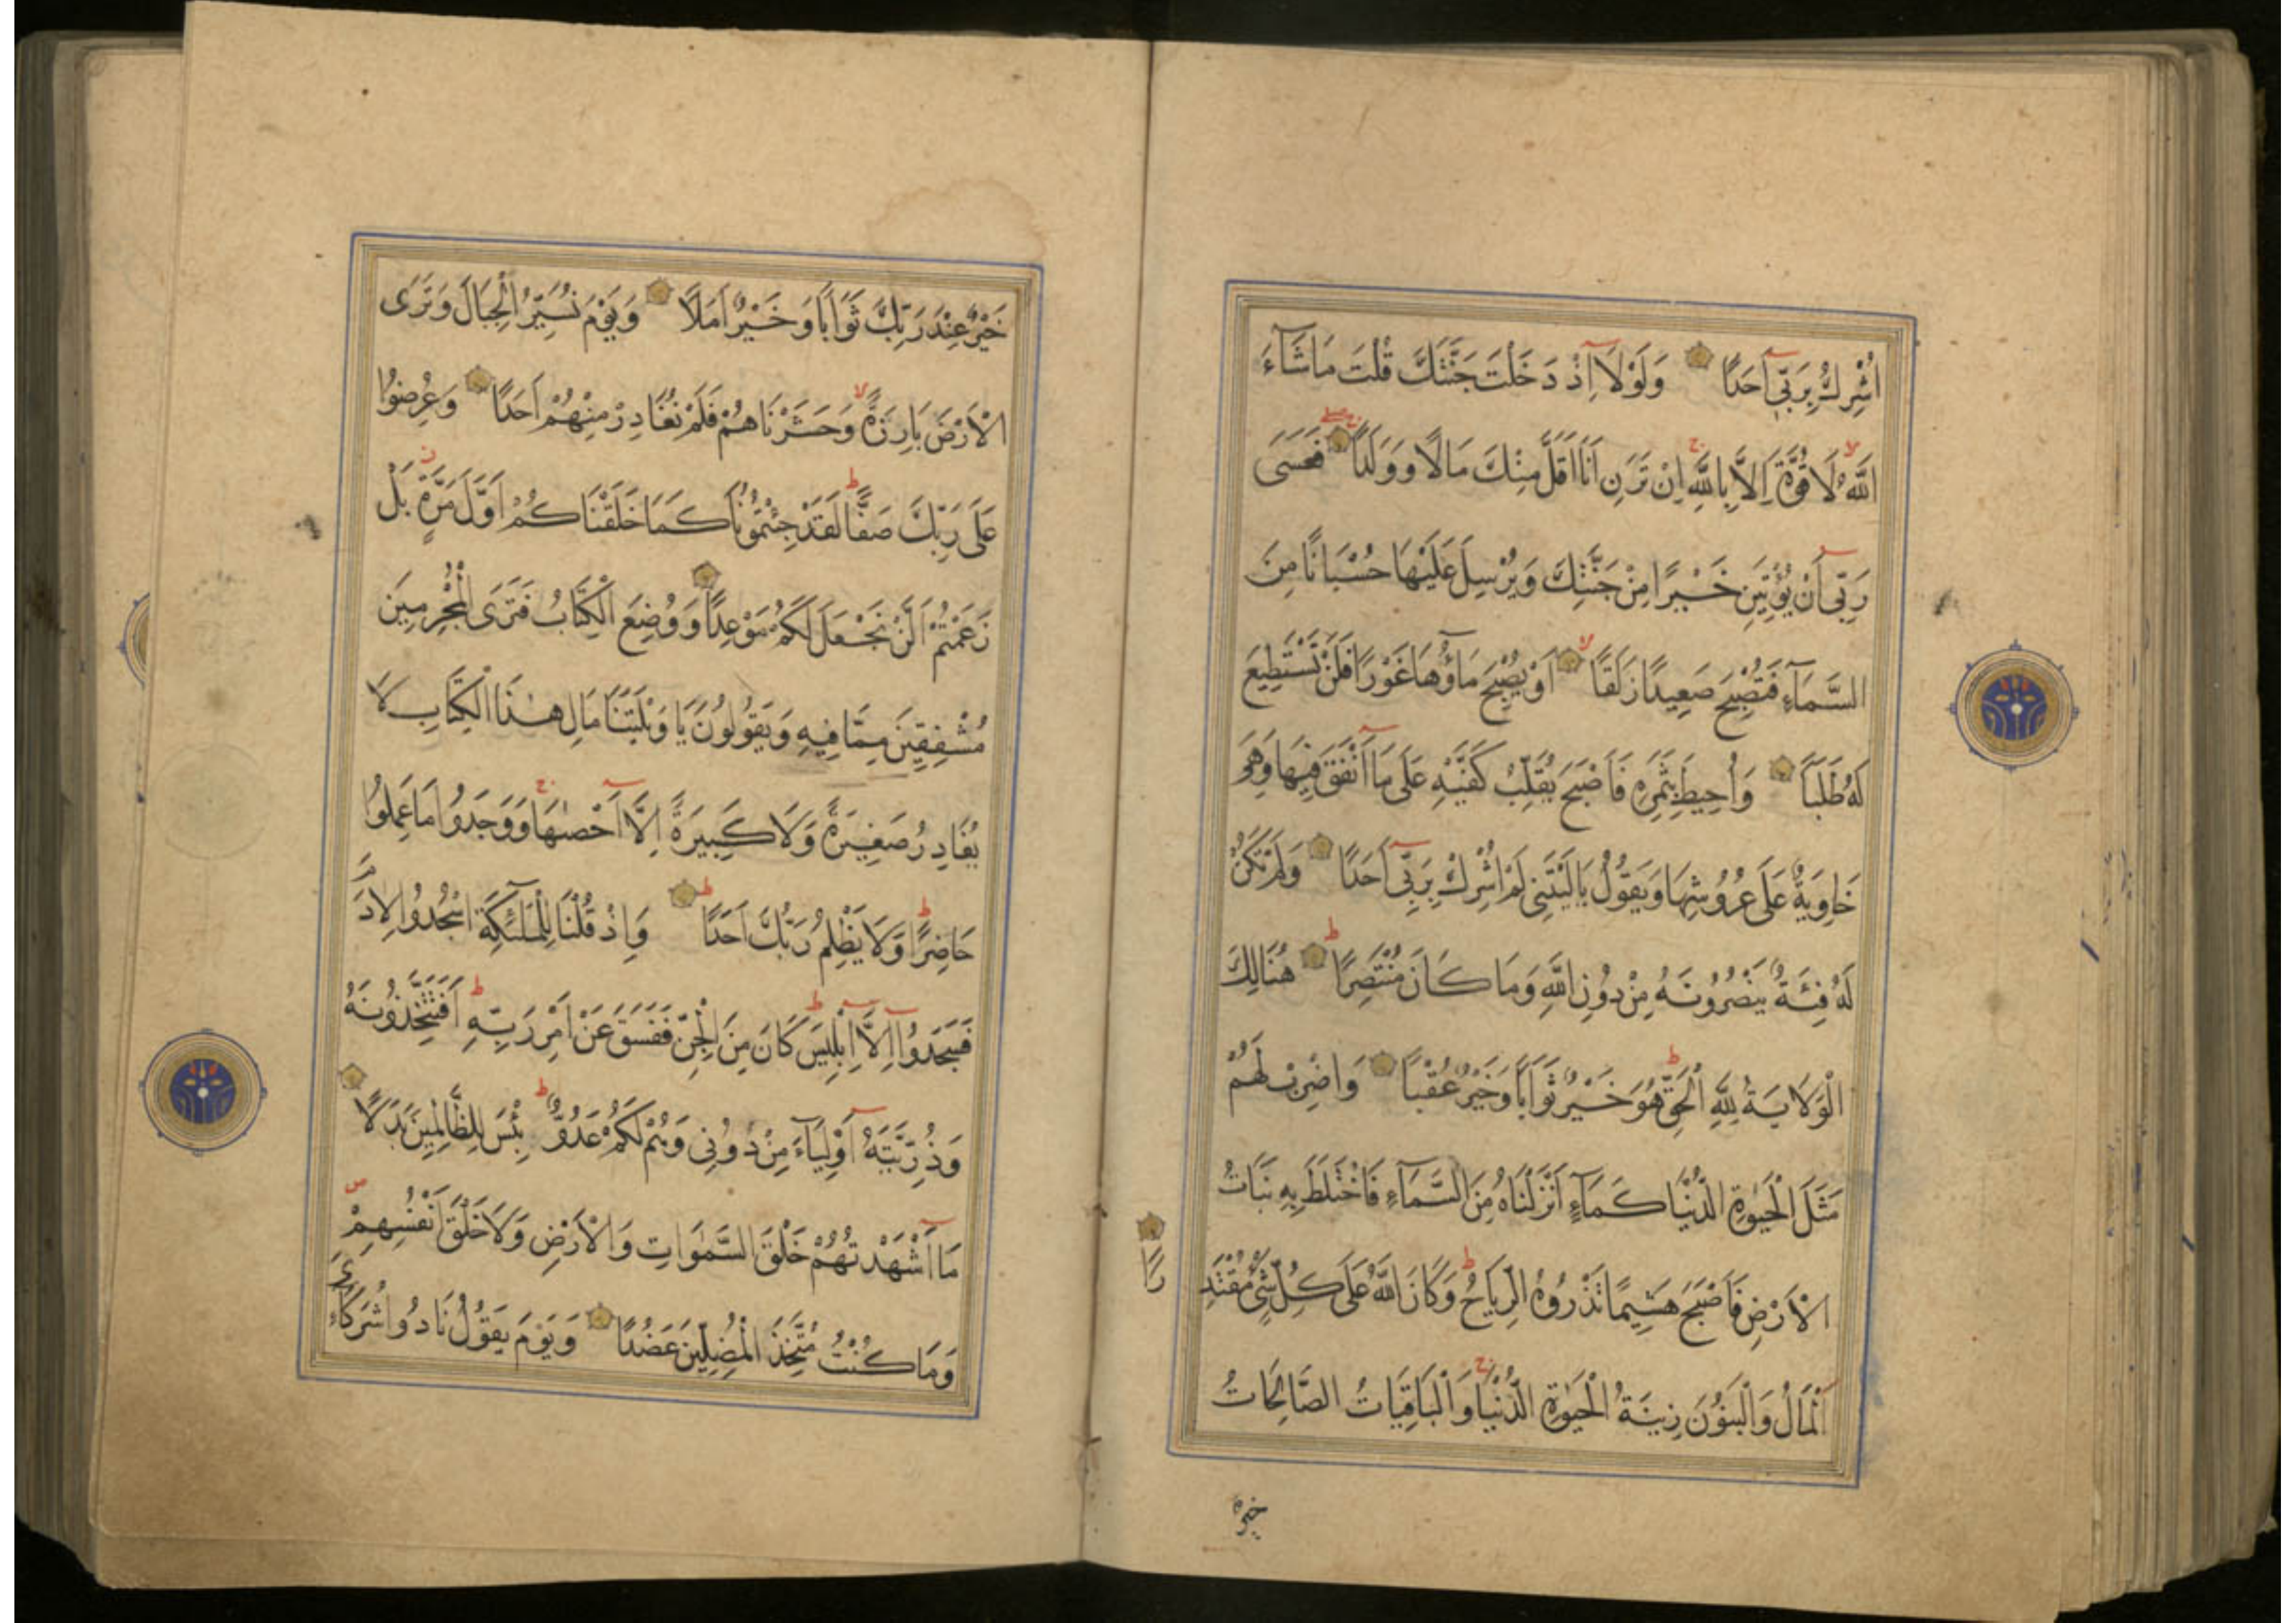 اُشْرِكُ بِرَبِّي اَحَدًا وَلَوْلَا اِذْ دَخَلْتَ جَنَّتَكَ قُلْتَ مَا شَآءَ
اللَّهُ لَا قُوَّةَ اِلَّا بِاللَّهِ اِنْ تَرَنِ اَنَا اَقَلَّ مِنْكَ مَالًا وَوَلَدًا فَعَسَى
رَبِّي اَنْ يُؤْتِيَنِ خَيْرًا مِنْ جَنَّتِكَ وَيُرْسِلَ عَلَيْهَا حُسْبَانًا مِنَ
السَّمَآءِ فَتُصْبِحَ صَعِيدًا زَلَقًا اَوْ يُصْبِحَ مَآؤُهَا غَوْرًا فَلَنْ تَسْتَطِيعَ
لَهُ طَلَبًا وَاُحِيطَ بِثَمَرِهِ فَاَصْبَحَ يُقَلِّبُ كَفَّيْهِ عَلَى مَا اَنْفَقَ فِيهَا وَهِيَ
خَاوِيَةٌ عَلَى عُرُوشِهَا وَيَقُولُ يَا لَيْتَنِي لَمْ اُشْرِكْ بِرَبِّي اَحَدًا وَلَمْ تَكُنْ
لَهُ فِئَةٌ يَنْصُرُونَهُ مِنْ دُونِ اللَّهِ وَمَا كَانَ مُنْتَصِرًا هُنَالِكَ
الْوَلَايَةُ لِلَّهِ الْحَقِّ هُوَ خَيْرٌ ثَوَابًا وَخَيْرٌ عُقْبًا وَاضْرِبْ لَهُمْ
مَثَلَ الْحَيٰوةِ الدُّنْيَا كَمَآءٍ اَنْزَلْنَاهُ مِنَ السَّمَآءِ فَاخْتَلَطَ بِهِ نَبَاتُ
الْاَرْضِ فَاَصْبَحَ هَشِيمًا تَذْرُوهُ الرِّيَاحُ وَكَانَ اللَّهُ عَلَى كُلِّ شَيْءٍ مُقْتَدِ
رًا
اَلْمَالُ وَالْبَنُونَ زِينَةُ الْحَيٰوةِ الدُّنْيَا وَالْبَاقِيَاتُ الصَّالِحَاتُ
خَيْرٌ
خَيْرٌ عِنْدَ رَبِّكَ ثَوَابًا وَخَيْرٌ اَمَلًا وَيَوْمَ نُسَيِّرُ الْجِبَالَ وَتَرَى
الْاَرْضَ بَارِزَةً وَحَشَرْنَاهُمْ فَلَمْ نُغَادِرْ مِنْهُمْ اَحَدًا وَعُرِضُوا
عَلَى رَبِّكَ صَفًّا لَقَدْ جِئْتُمُونَا كَمَا خَلَقْنَاكُمْ اَوَّلَ مَرَّةٍ بَلْ
زَعَمْتُمْ اَلَّنْ نَجْعَلَ لَكُمْ مَوْعِدًا وَوُضِعَ الْكِتَابُ فَتَرَى الْمُجْرِمِينَ
مُشْفِقِينَ مِمَّا فِيهِ وَيَقُولُونَ يَا وَيْلَتَنَا مَالِ هٰذَا الْكِتَابِ لَا
يُغَادِرُ صَغِيرَةً وَلَا كَبِيرَةً اِلَّا اَحْصٰيهَا وَوَجَدُوا مَا عَمِلُوا
حَاضِرًا وَلَا يَظْلِمُ رَبُّكَ اَحَدًا وَاِذْ قُلْنَا لِلْمَلٰٓئِكَةِ اسْجُدُوا لِاٰدَمَ
فَسَجَدُوا اِلَّا اِبْلِيسَ كَانَ مِنَ الْجِنِّ فَفَسَقَ عَنْ اَمْرِ رَبِّهِ اَفَتَتَّخِذُونَهُ
وَذُرِّيَّتَهُ اَوْلِيَآءَ مِنْ دُونِي وَهُمْ لَكُمْ عَدُوٌّ بِئْسَ لِلظَّالِمِينَ بَدَلًا
مَا اَشْهَدْتُهُمْ خَلْقَ السَّمٰوَاتِ وَالْاَرْضِ وَلَا خَلْقَ اَنْفُسِهِمْ
وَمَا كُنْتُ مُتَّخِذَ الْمُضِلِّينَ عَضُدًا وَيَوْمَ يَقُولُ نَادُوا شُرَكَآءِيَ